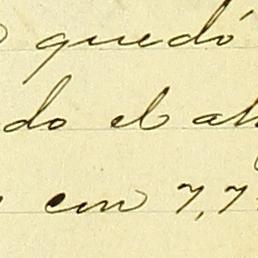 quedó
do el
con 7,7